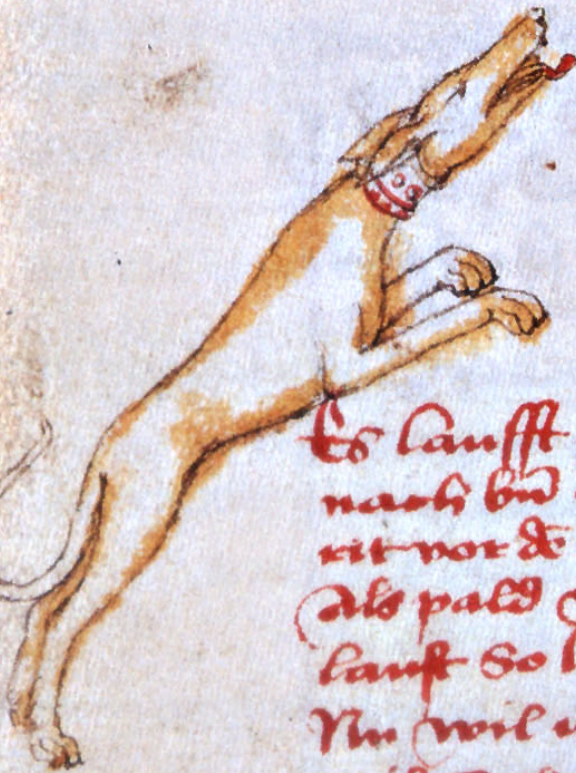 Es laufft
nach vn̄
rit vor dē
Als pald
lauft So
Nu wil